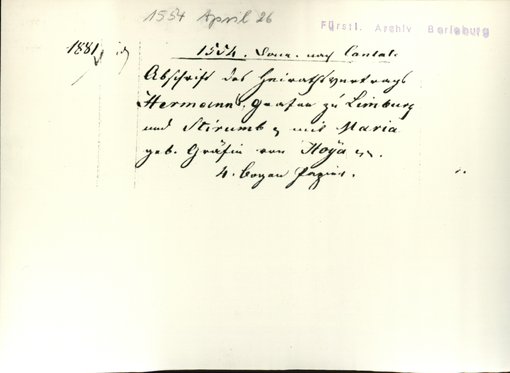 1554 April 26
Fürstl. Archiv Berleburg
1881
1554. Donn. nach Cantate
Abschrift des Heirathsvertrags
Hermanns, Grafen zu Limburg
und Stirumb mit Maria
geb. Gräfin von Hoya
4. Bogen Papier.